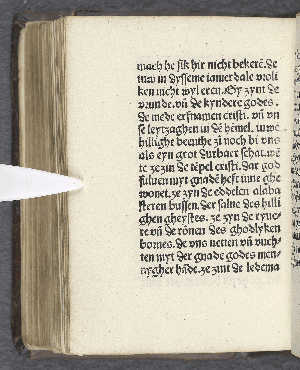 mach he sik hir nicht bekerē. de
inw in dysseme iamerdale wroli
ken nicht wyl eren. Sy zynt de
vrunde. vñ de kyndere godes.
de mede erfnamen cristi. vñ vn
se leytzaghen in dē hēmel. uwe
hillighe beenthe zi noch bi vns
als eyn grot durbaer schat. wē
te ze zin de tēpel cristi. Dar god
suluen myt gnadē heft inne ghe
wonet. ze zyn de eddelen alaba
steren bussen. der salue des hilli
ghen gheystes. ze zyn de
re vñ de rōnen des ghodlyken
bornes. de vns netten vñ vuch
ten myt der gnade godes men
nygher hāde. ze zint de ledema